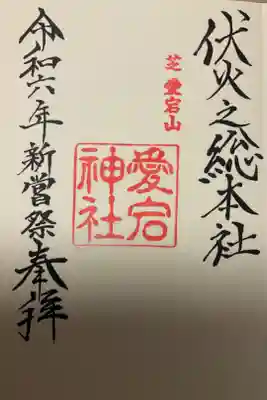 伏火之総本社
芝愛宕山
愛宕
神社
令和六年新嘗祭奉拝